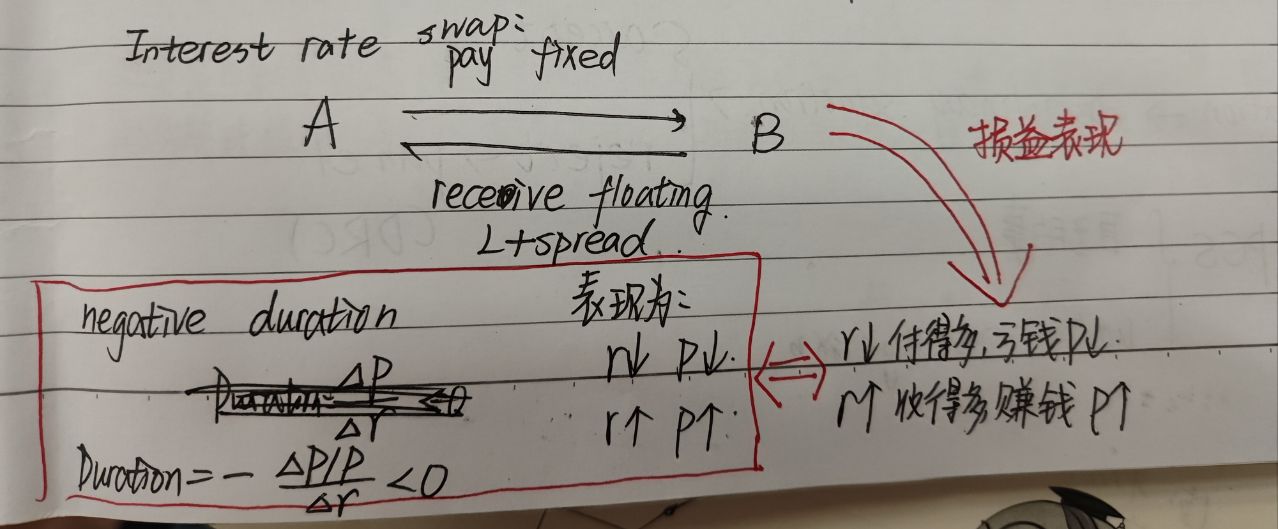 Interest rate swap:
pay fixed
A B
损益表现
receive floating.
L+spread..
negative duration
表现为:
r↓ P↓.
r↑ P↑.
r↓ 付得多,亏钱P↓.
r↑ 收得多 赚钱 P↑
Duration = - ΔP/P / Δr <0